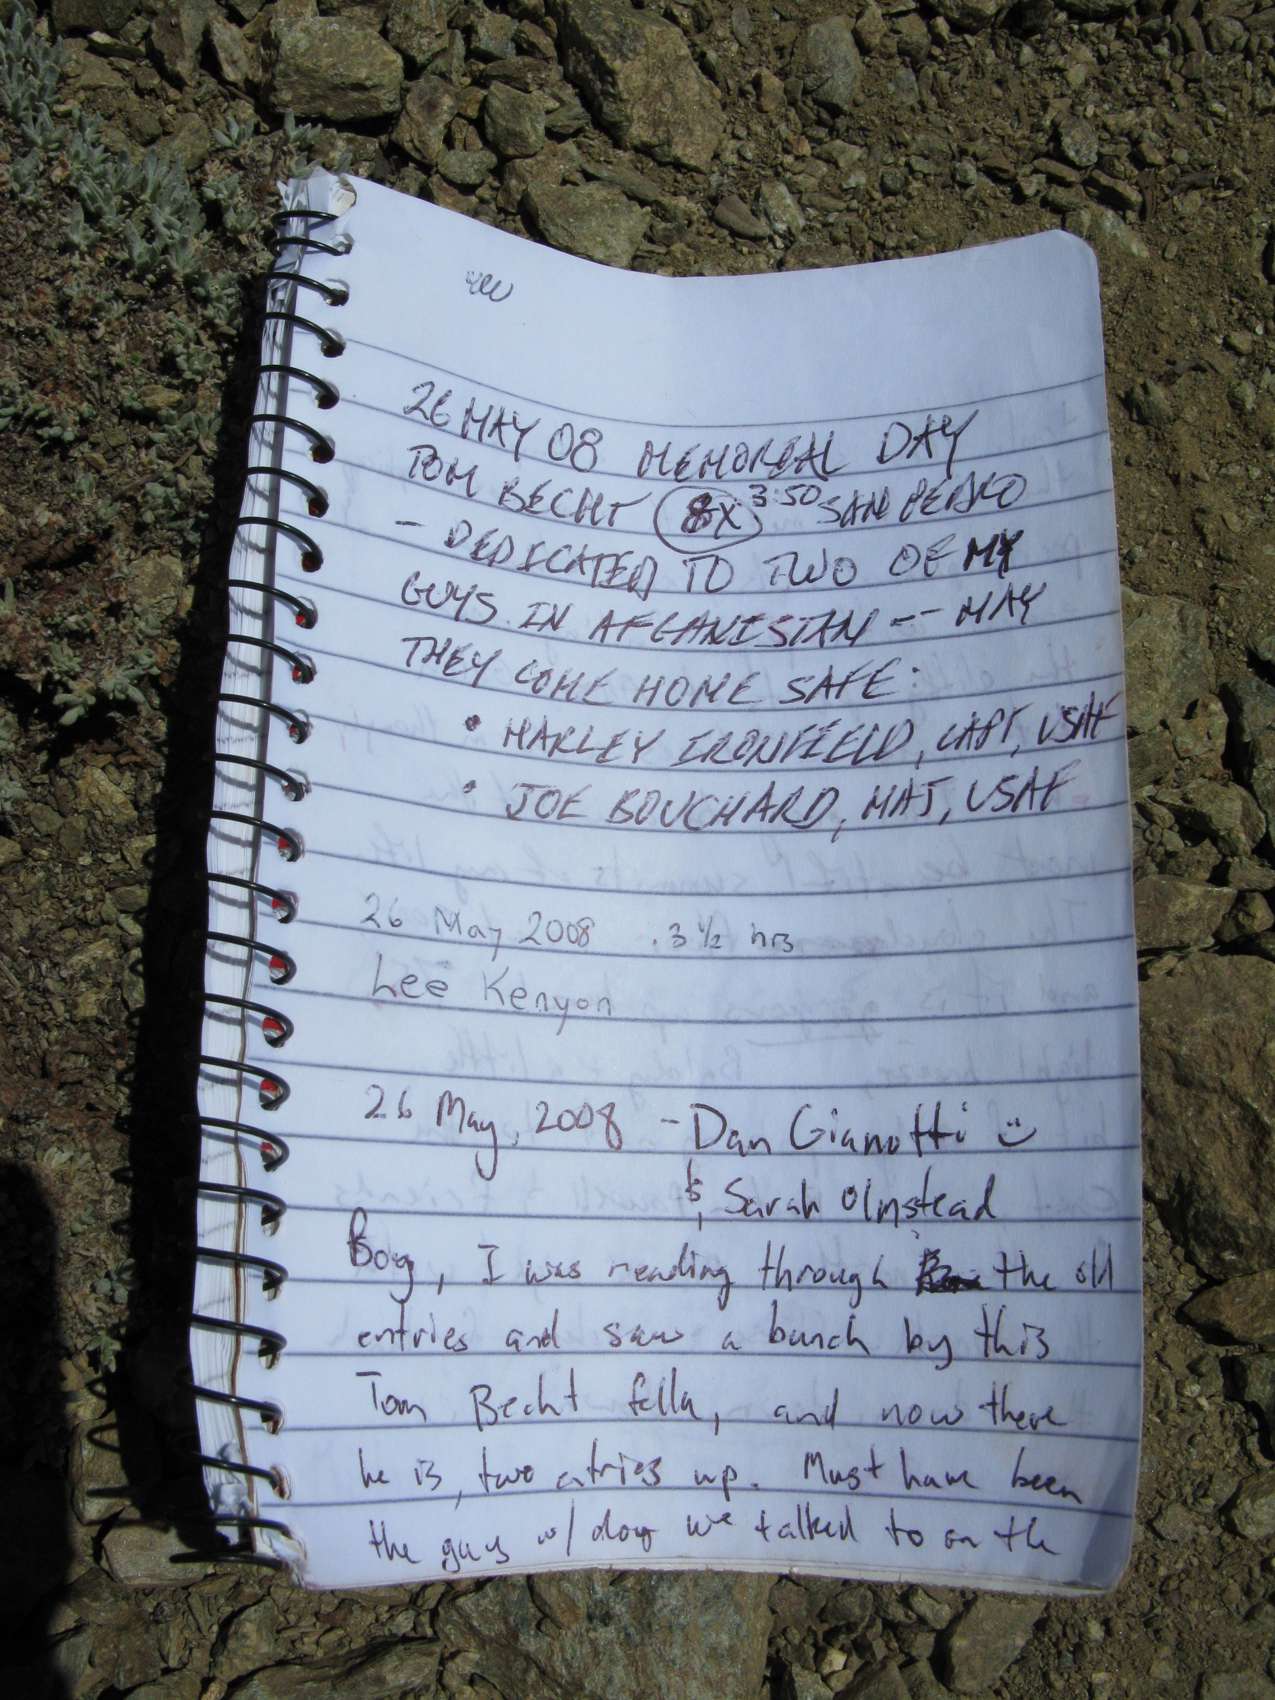 26 MAY 08 MEMOREAL DAY
TOM BECHT 8X 3:50 SAN PEDRO
- DEDICATED TO TWO OF MY
GUYS IN AFGANISTAN -- MAY
THEY COME HOME SAFE:
• HARLEY IRONFIELD, CAPT, USAF
• JOE BOUCHARD, MAJ, USAF
26 May 2008 3 1/2 hrs
Lee Kenyon
26 May, 2008 - Dan Gianotti
& Sarah Olmstead
Boy, I was reading through the old
entries and saw a bunch by this
Tom Becht fella, and now there
he is, two entries up. Must have been
the guy w/ dog we talked to on the